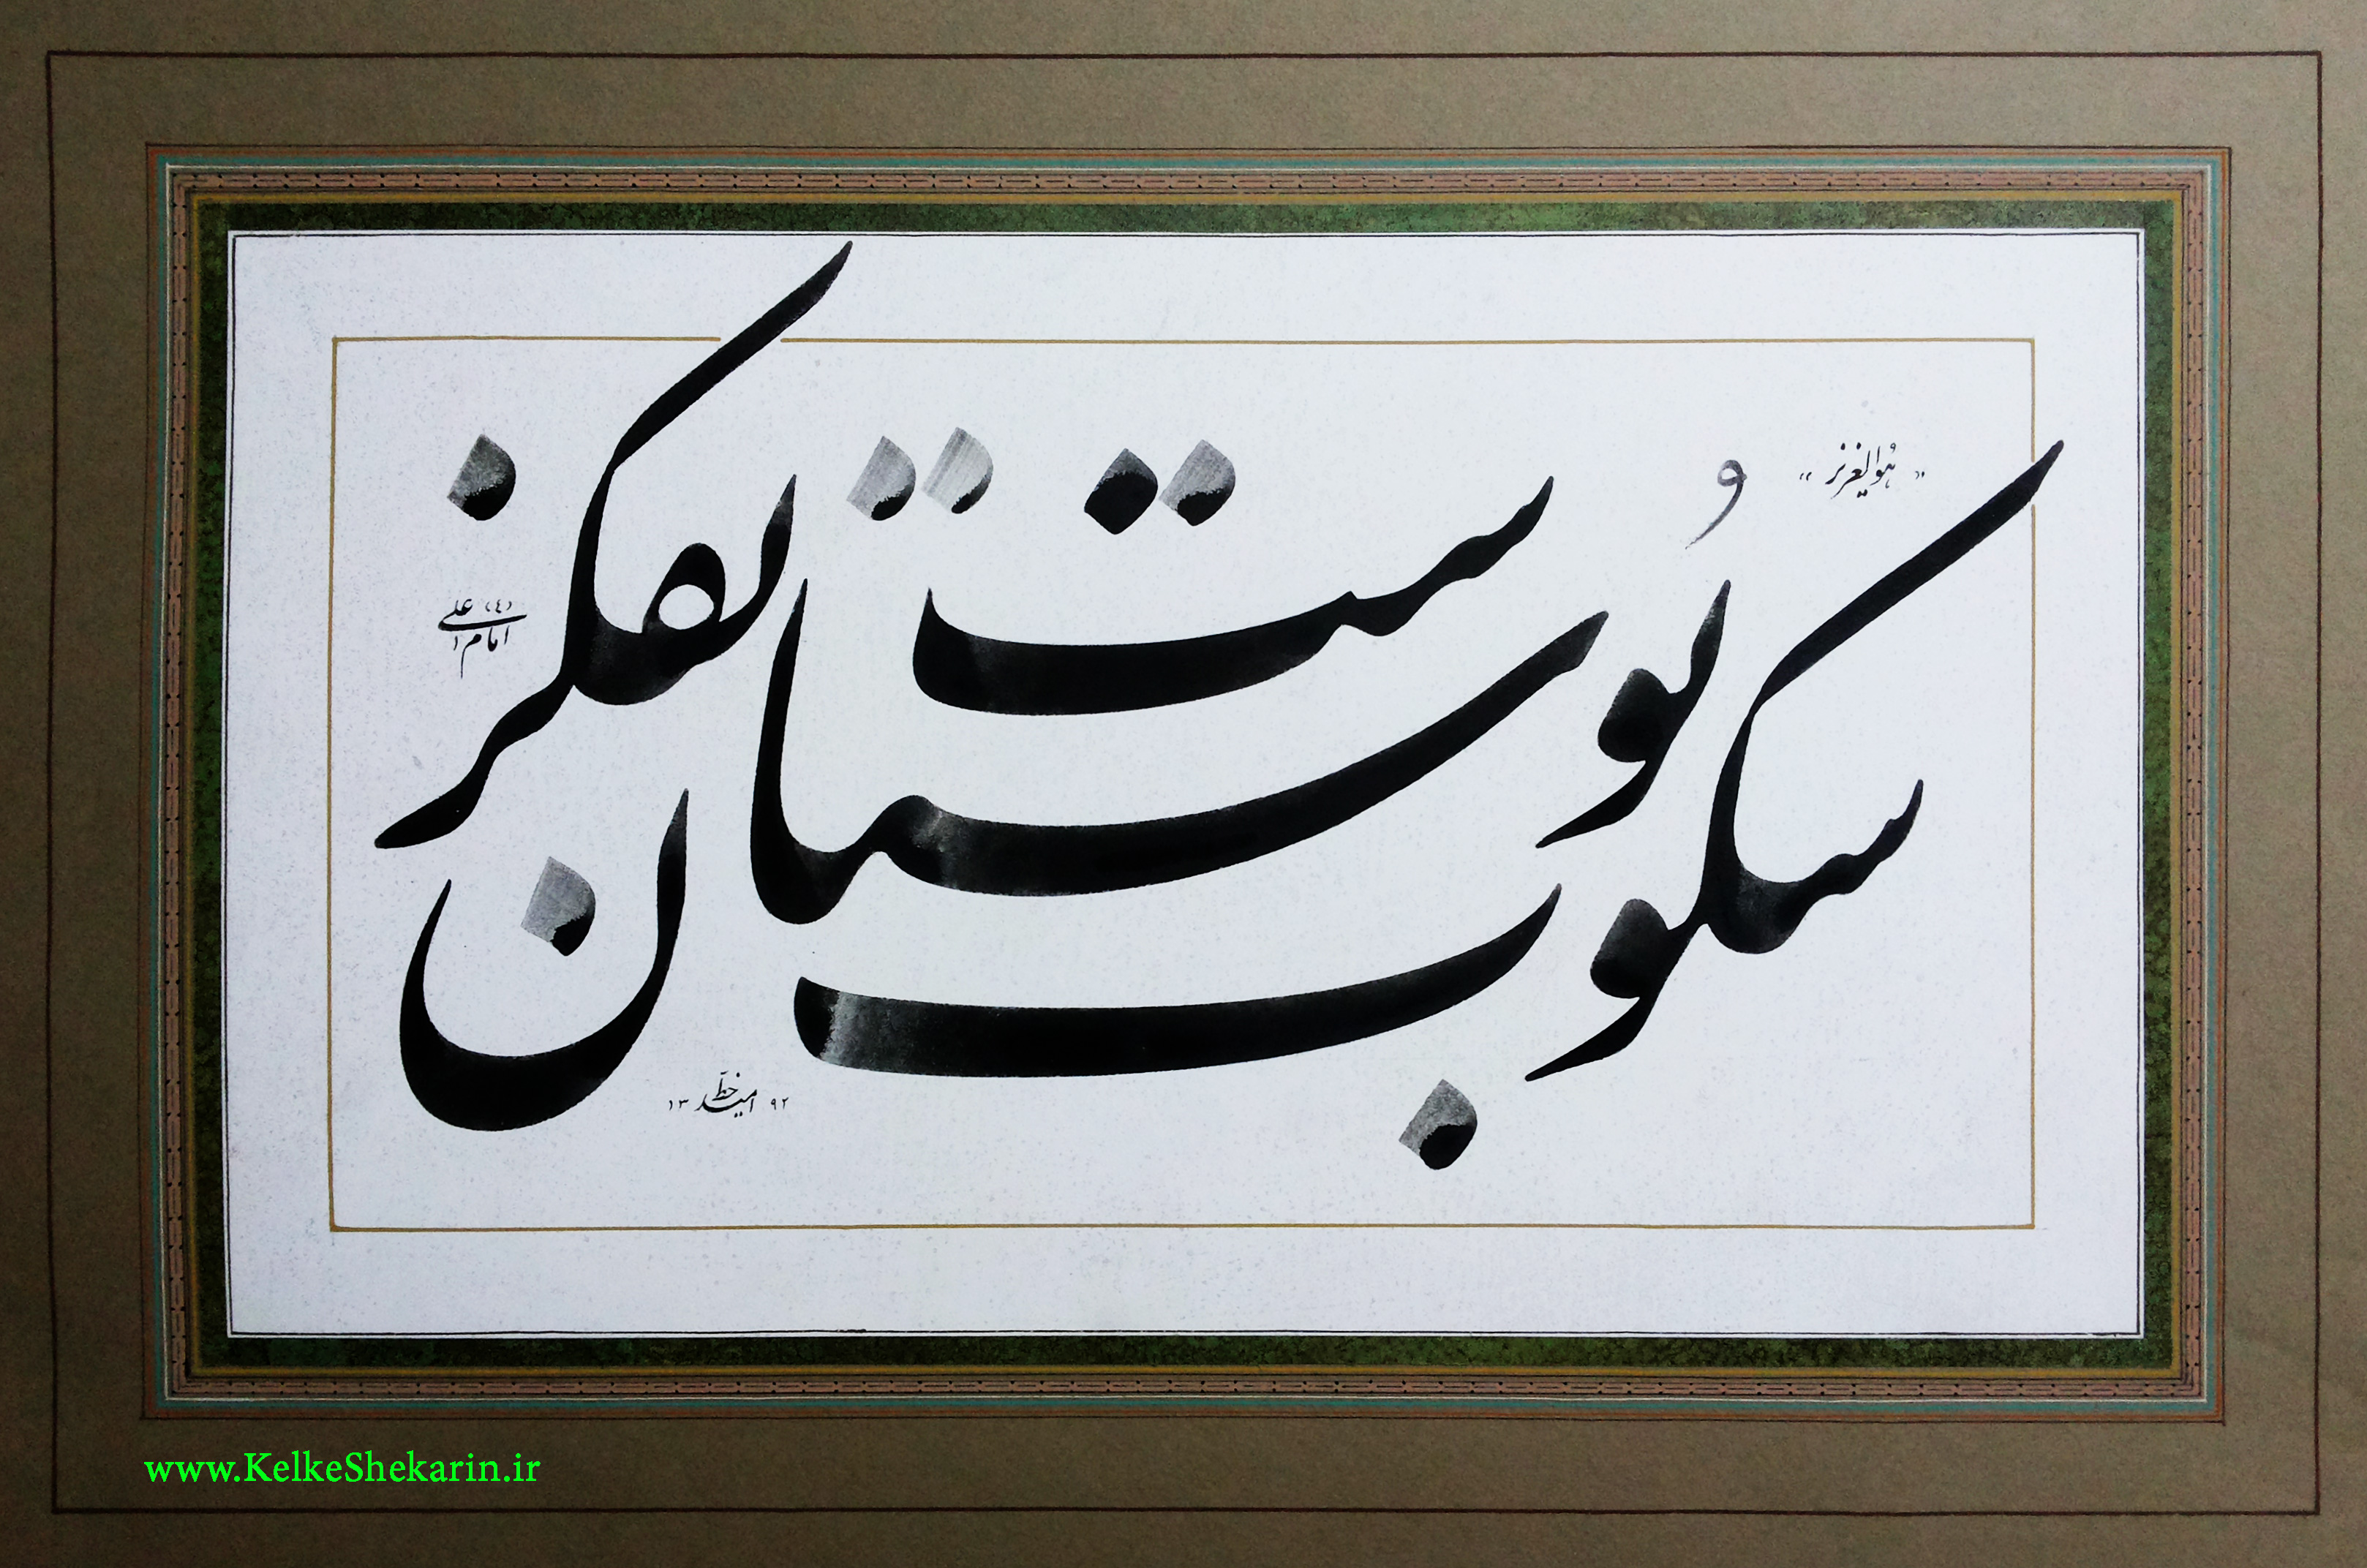 «هوالعزیز»
سکوت بوستان تفکرست
امام علی (ع)
خط امید ۱۳۹۲
www.KelkeShekarin.ir